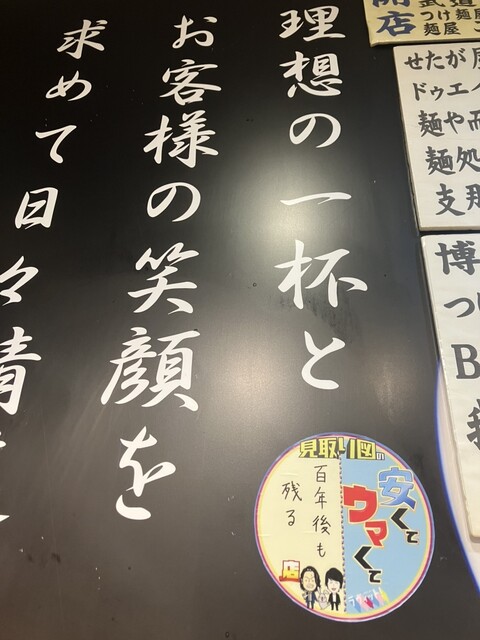 理想の一杯と
お客様の笑顔を
求めて日々精
見取り図の
安くて
ウマくて
百年後も
残る
店
開店
つけ麺
麺屋
せたが
ドゥエ
麺や
麺処
支那
博
つ
B